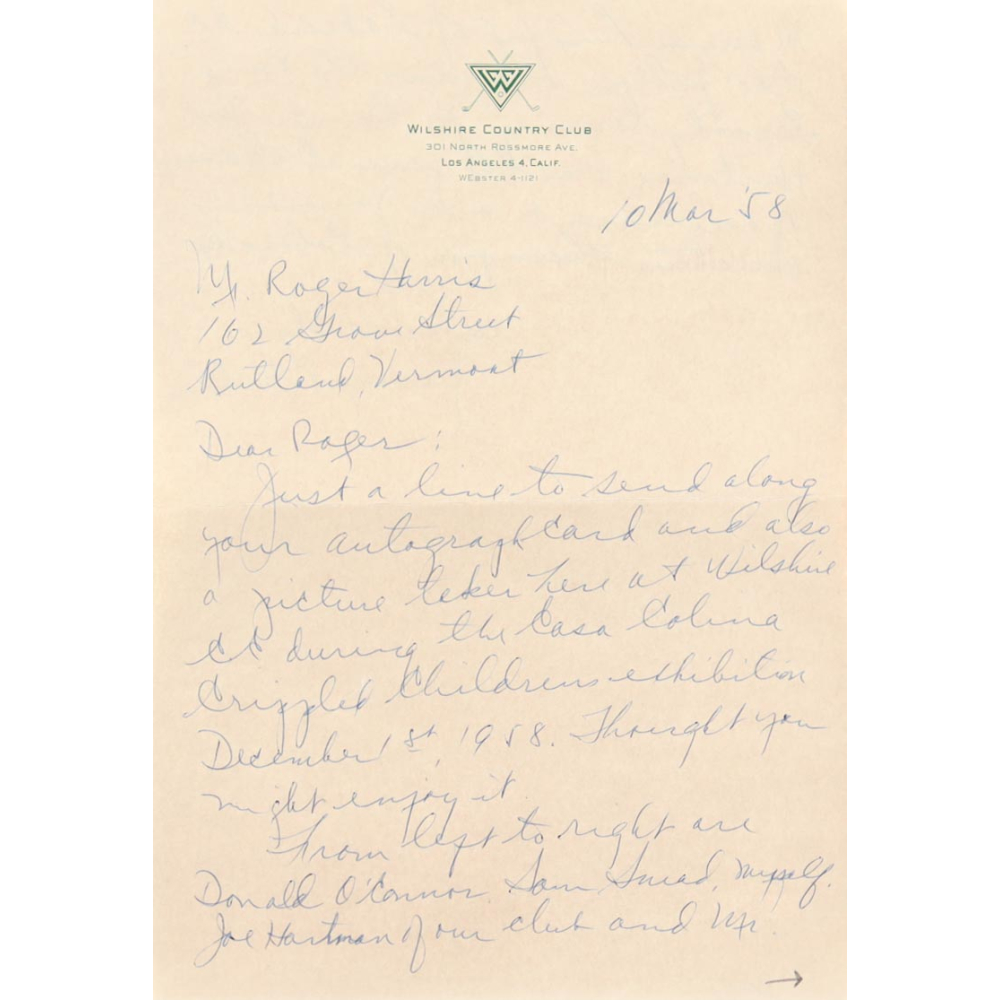 WILSHIRE COUNTRY CLUB
301 NORTH ROSSMORE AVE.
LOS ANGELES 4, CALIF.
WEBSTER 4-1121
10 Mar '58
Mr. Roger Harris
162 Grove Street
Rutland, Vermont
Dear Roger:
Just a line to send along
your autograph card and also
a picture taken here at Wilshire
CC during the Casa Colina
Crippled Childrens exhibition
December 1st, 1958. Thought you
might enjoy it.
From left to right are
Donald O'Connor, Sam Snead, myself,
Joe Hartman of our club and Mr.
→